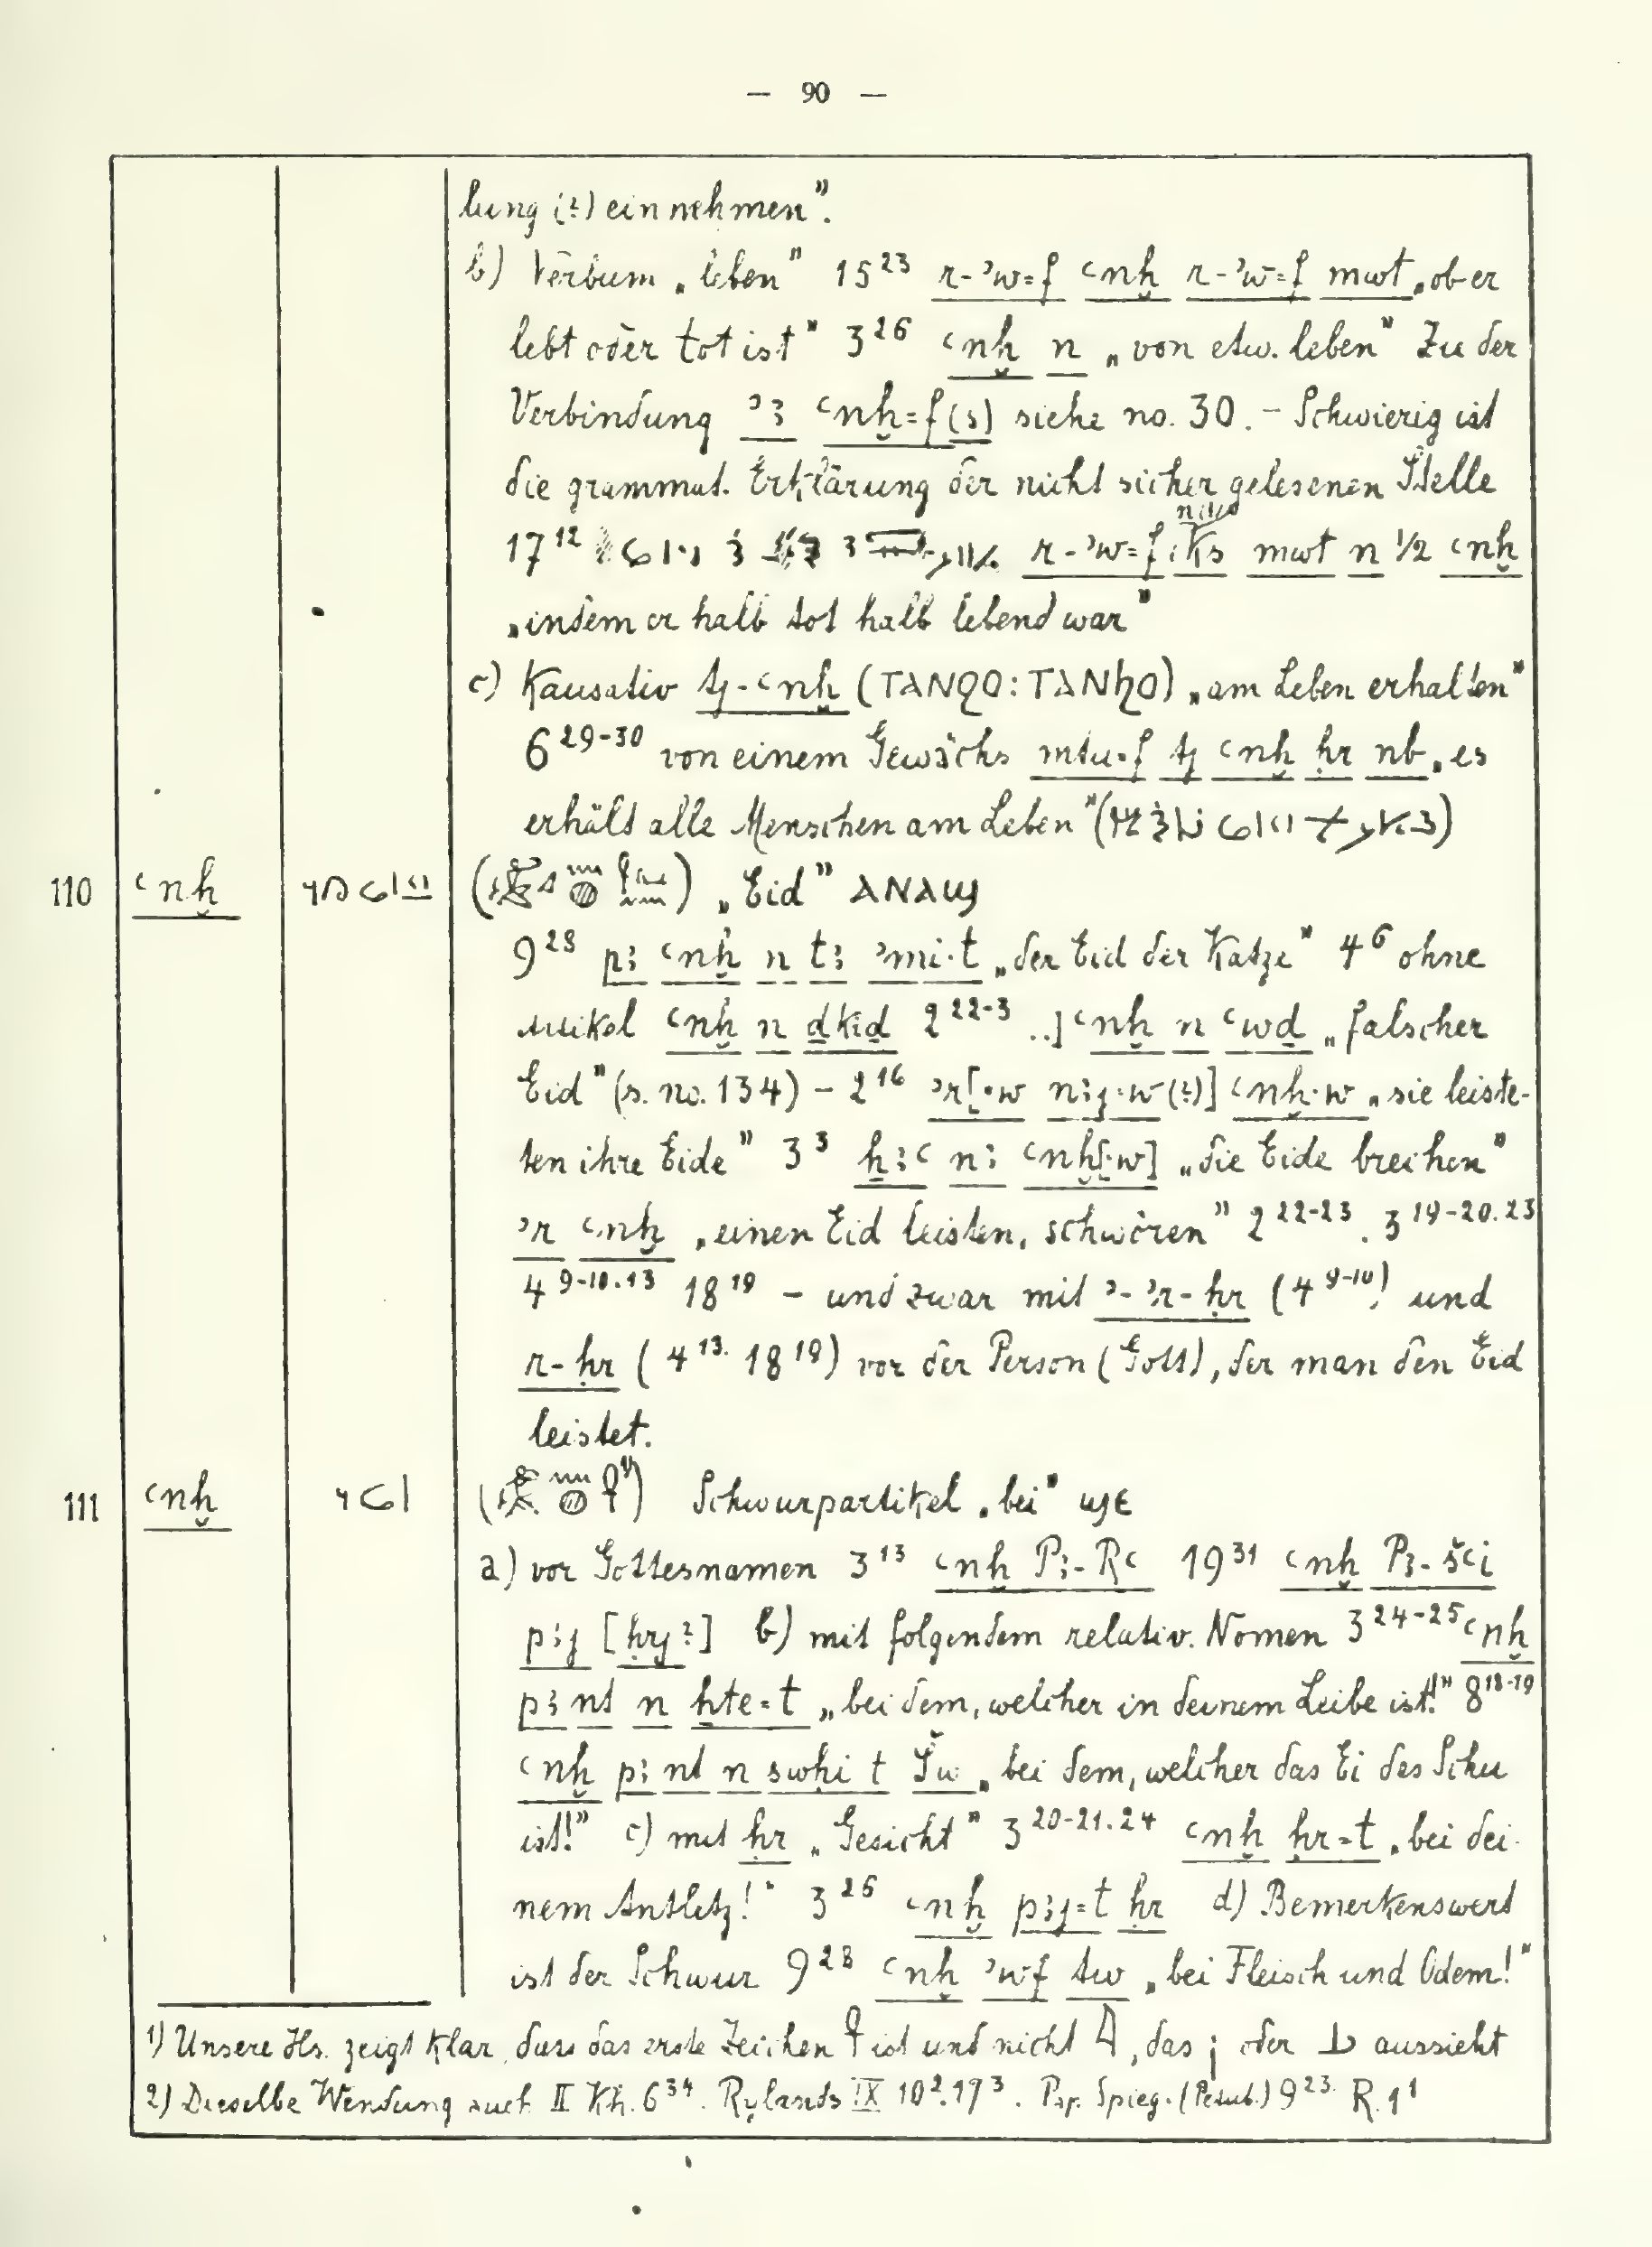 — 90 —
lung (?) einnehmen”.
b) Verbum „leben” 15²³ r-ʾw=f ꜥnḫ r-ʾw=f mwt „ob er
lebt oder tot ist” 3²⁶ ꜥnḫ n „von etw. leben” Zu der
Verbindung ʾꜣ ꜥnḫ=f(s) siehe no. 30. – Schwierig ist
die grammat. Erklärung der nicht sicher gelesenen Stelle
17¹² r-ʾw=f ks mwt n ½ ꜥnḫ
„indem er halb tot halb lebend war”
c) Kausativ tj-ꜥnḫ (ⲧⲁⲛϩⲟ: ⲧⲁⲛϧⲟ) „am Leben erhalten”
6²⁹⁻³⁰ von einem Gewächs mtu=f tj ꜥnḫ ḥr nb „es
erhält alle Menschen am Leben” ( )
110 ꜥnḫ ( ) „Eid” ⲁⲛⲁϣ
9²⁸ pꜣ ꜥnḫ n tꜣ ʾmi·t „der Eid der Katze” 4⁶ ohne
Artikel ꜥnḫ n ḏkiḏ 2²²⁻³ ..] ꜥnḫ n ꜥwḏ „falscher
Eid” (s. no. 134) – 2¹⁶ ʾr[·w nꜣj·w (?)] ꜥnḫ·w „sie leiste-
ten ihre Eide” 3³ ẖꜣꜥ nꜣ ꜥnḫ[·w] „die Eide brechen”
ʾr ꜥnḫ „einen Eid leisten, schwören” 2²²⁻²³. 3¹⁹⁻²⁰·²³
4⁹⁻¹⁰·¹³ 18¹⁹ – und zwar mit ʾ-ʾr-ḥr (4⁹⁻¹⁰) und
r-ḥr (4¹³· 18¹⁹) vor der Person (Gott), der man den Eid
leistet.
111 ꜥnḫ ( ) Schwurpartikel „bei” ϣⲉ
a) vor Gottesnamen 3¹³ ꜥnḫ Pꜣ-Rꜥ 19³¹ ꜥnḫ Pꜣ-šꜥi
pꜣj [ḥrj?] b) mit folgendem relativ. Nomen 3²⁴⁻²⁵ ꜥnḫ
pꜣ nt n ẖte=t „bei dem, welcher in deinem Leibe ist!” 8¹⁸⁻¹⁹
ꜥnḫ pꜣ nt n swḥi t Šu „bei dem, welcher das Ei des Schu
ist!” c) mit ḥr „Gesicht” 3²⁰⁻²¹·²⁴ ꜥnḫ ḥr=t „bei dei-
nem Antlitz!” 3²⁶ ꜥnḫ pꜣj=t ḥr d) Bemerkenswert
ist der Schwur 9²⁸ ꜥnḫ ʾwf tw „bei Fleisch und Odem!”
1) Unsere Hs. zeigt klar, dass das erste Zeichen ist und nicht , das oder aussieht
2) Dieselbe Wendung auch II Kh. 6³⁴. Rylands IX 10²·17³. Pap. Spieg. (Petub.) 9²³ R. 1¹